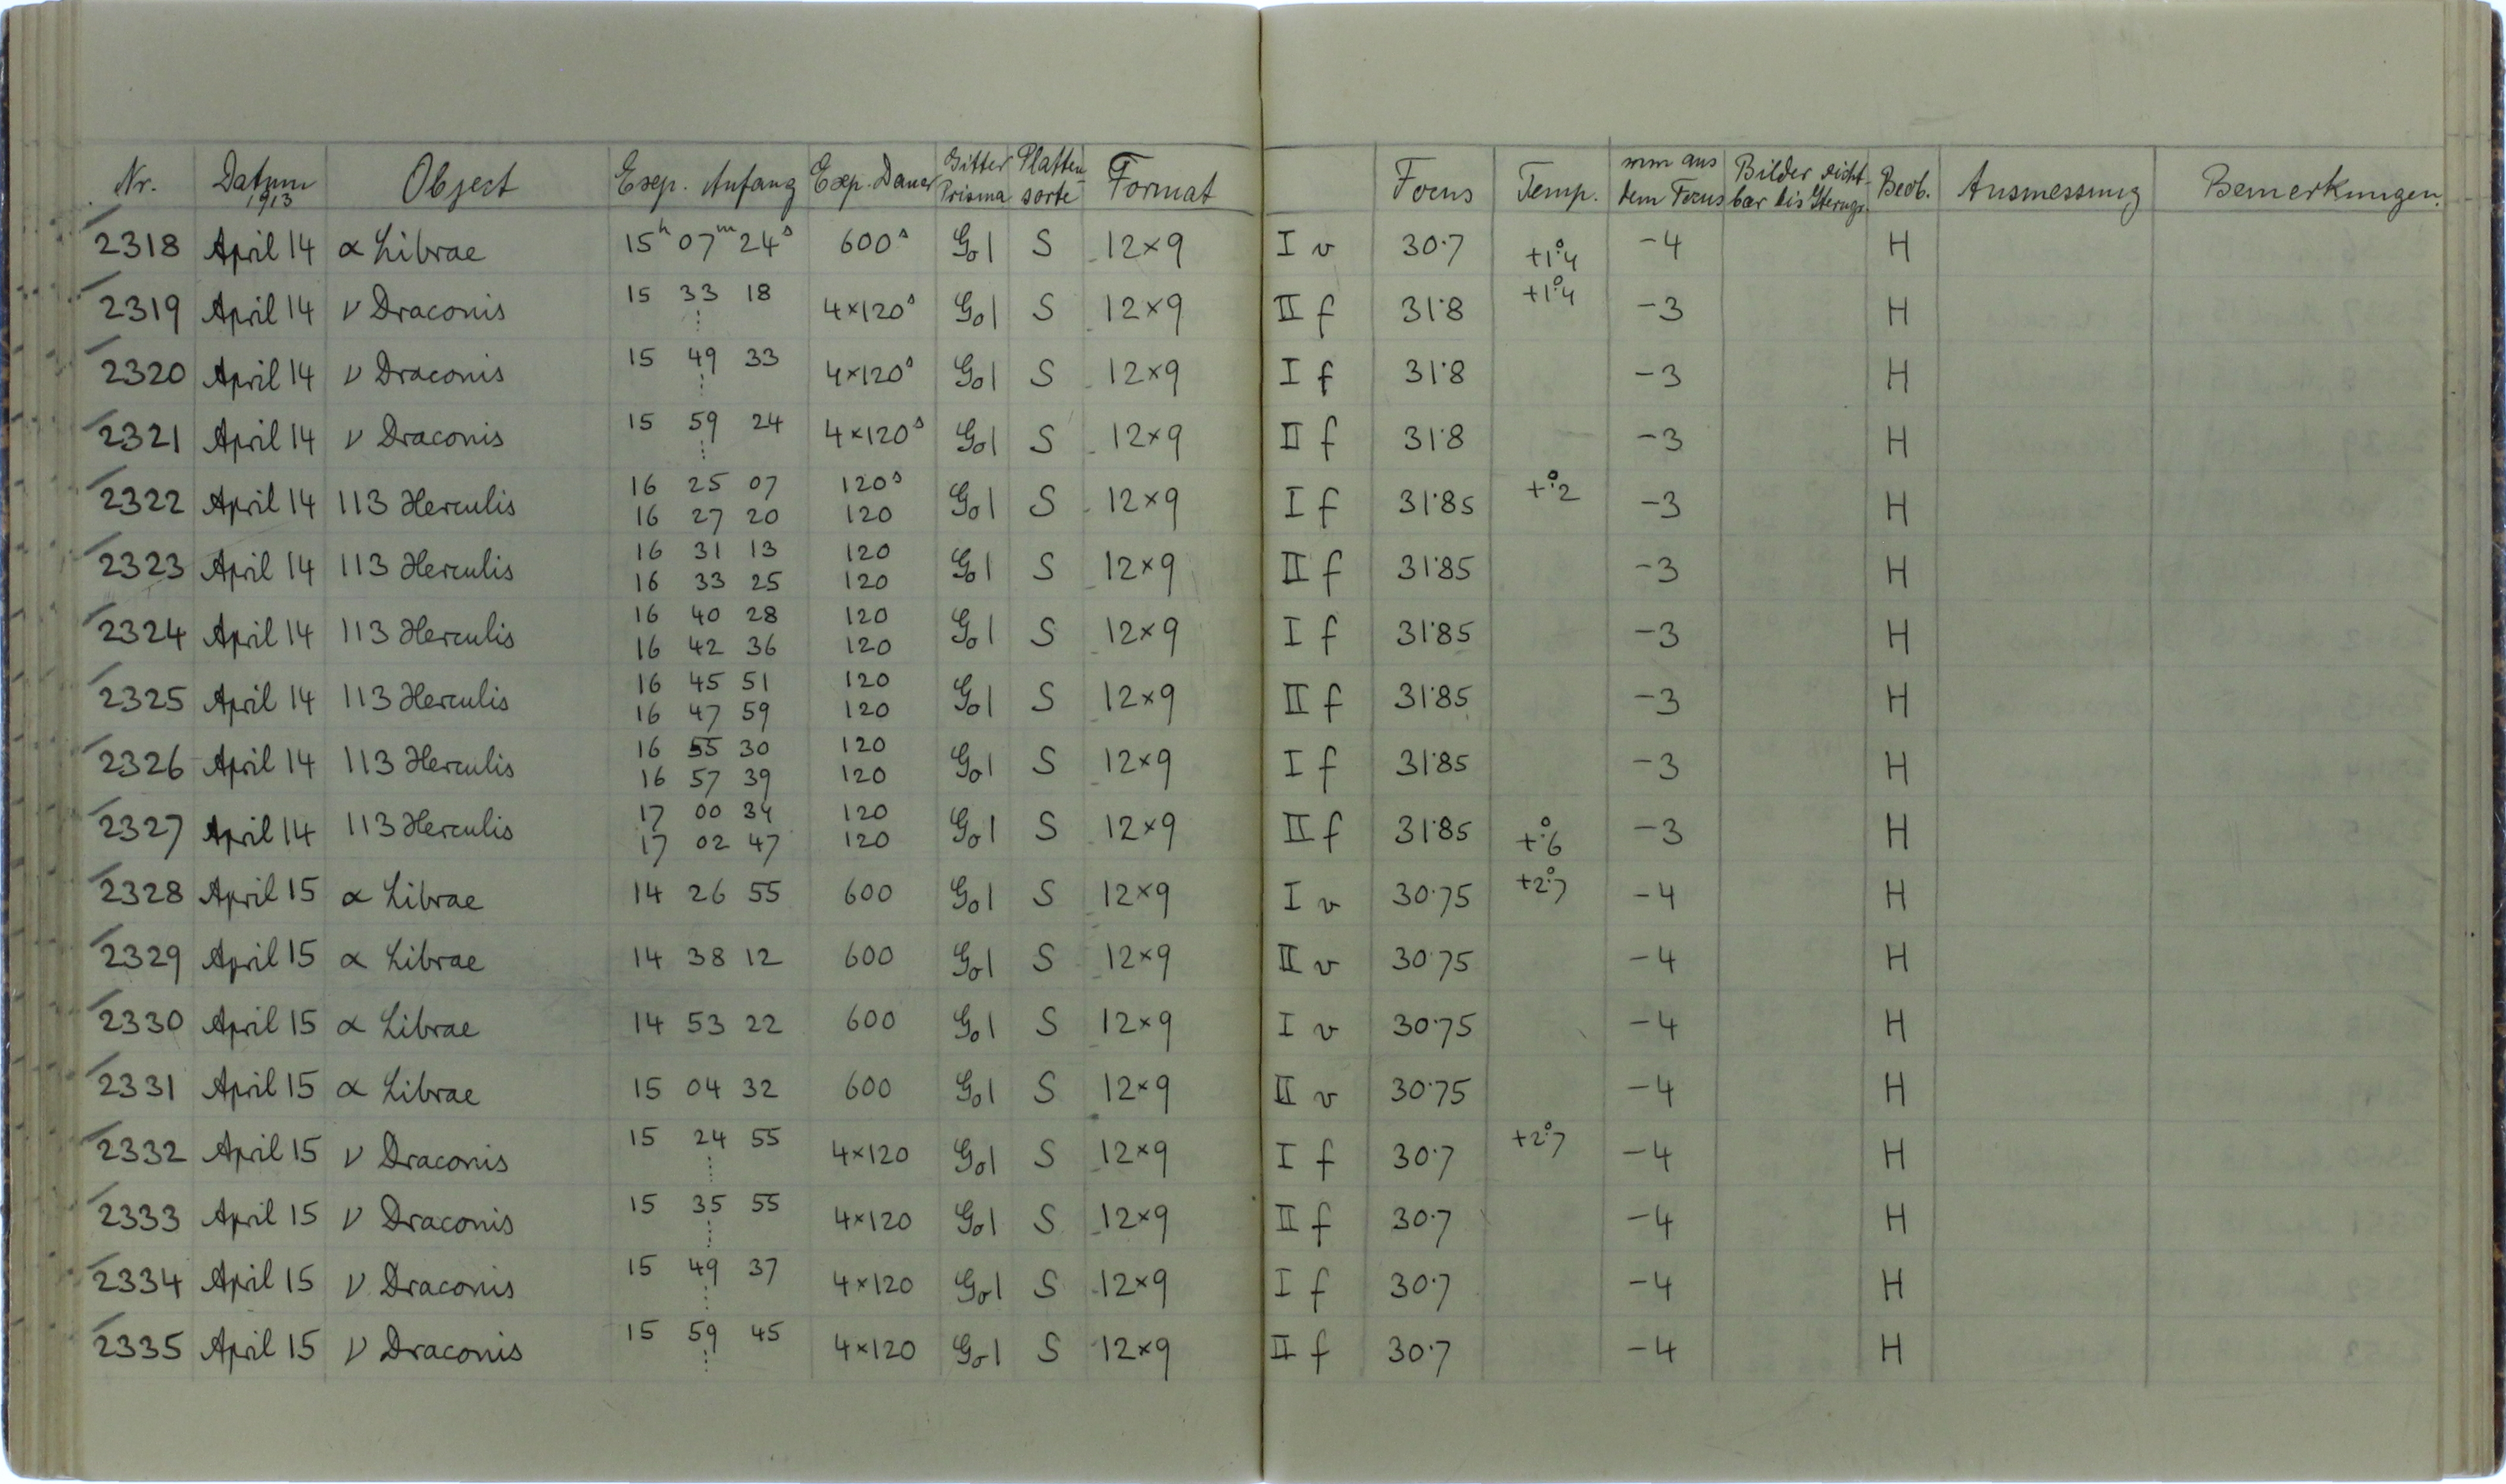 Nr. Datum 1913 Object Exp. Anfang Exp. Dauer Gitter Prisma Platten-sorte Format Focus Temp. mm aus dem Focus Bilder sicht-bar bis Sterngr. Beob. Ausmessung Bemerkungen.
2318 April 14 α Librae 15h 07m 24s 600s Go1 S 12×9 I v 30.7 +1°.4 -4 H
2319 April 14 ν Draconis 15 33 18 4×120s Go1 S 12×9 II f 31.8 +1°.4 -3 H
2320 April 14 ν Draconis 15 49 33 4×120s Go1 S 12×9 I f 31.8 -3 H
2321 April 14 ν Draconis 15 59 24 4×120s Go1 S 12×9 II f 31.8 -3 H
2322 April 14 113 Herculis 16 25 07 120s Go1 S 12×9 I f 31.85 +°.2 -3 H
16 27 20 120
2323 April 14 113 Herculis 16 31 13 120 Go1 S 12×9 II f 31.85 -3 H
16 33 25 120
2324 April 14 113 Herculis 16 40 28 120 Go1 S 12×9 I f 31.85 -3 H
16 42 36 120
2325 April 14 113 Herculis 16 45 51 120 Go1 S 12×9 II f 31.85 -3 H
16 47 59 120
2326 April 14 113 Herculis 16 55 30 120 Go1 S 12×9 I f 31.85 -3 H
16 57 39 120
2327 April 14 113 Herculis 17 00 34 120 Go1 S 12×9 II f 31.85 +°.6 -3 H
17 02 47 120
2328 April 15 α Librae 14 26 55 600 Go1 S 12×9 I v 30.75 +2°.7 -4 H
2329 April 15 α Librae 14 38 12 600 Go1 S 12×9 II v 30.75 -4 H
2330 April 15 α Librae 14 53 22 600 Go1 S 12×9 I v 30.75 -4 H
2331 April 15 α Librae 15 04 32 600 Go1 S 12×9 II v 30.75 -4 H
2332 April 15 ν Draconis 15 24 55 4×120 Go1 S 12×9 I f 30.7 +2°.7 -4 H
2333 April 15 ν Draconis 15 35 55 4×120 Go1 S 12×9 II f 30.7 -4 H
2334 April 15 ν Draconis 15 49 37 4×120 Go1 S 12×9 I f 30.7 -4 H
2335 April 15 ν Draconis 15 59 45 4×120 Go1 S 12×9 II f 30.7 -4 H